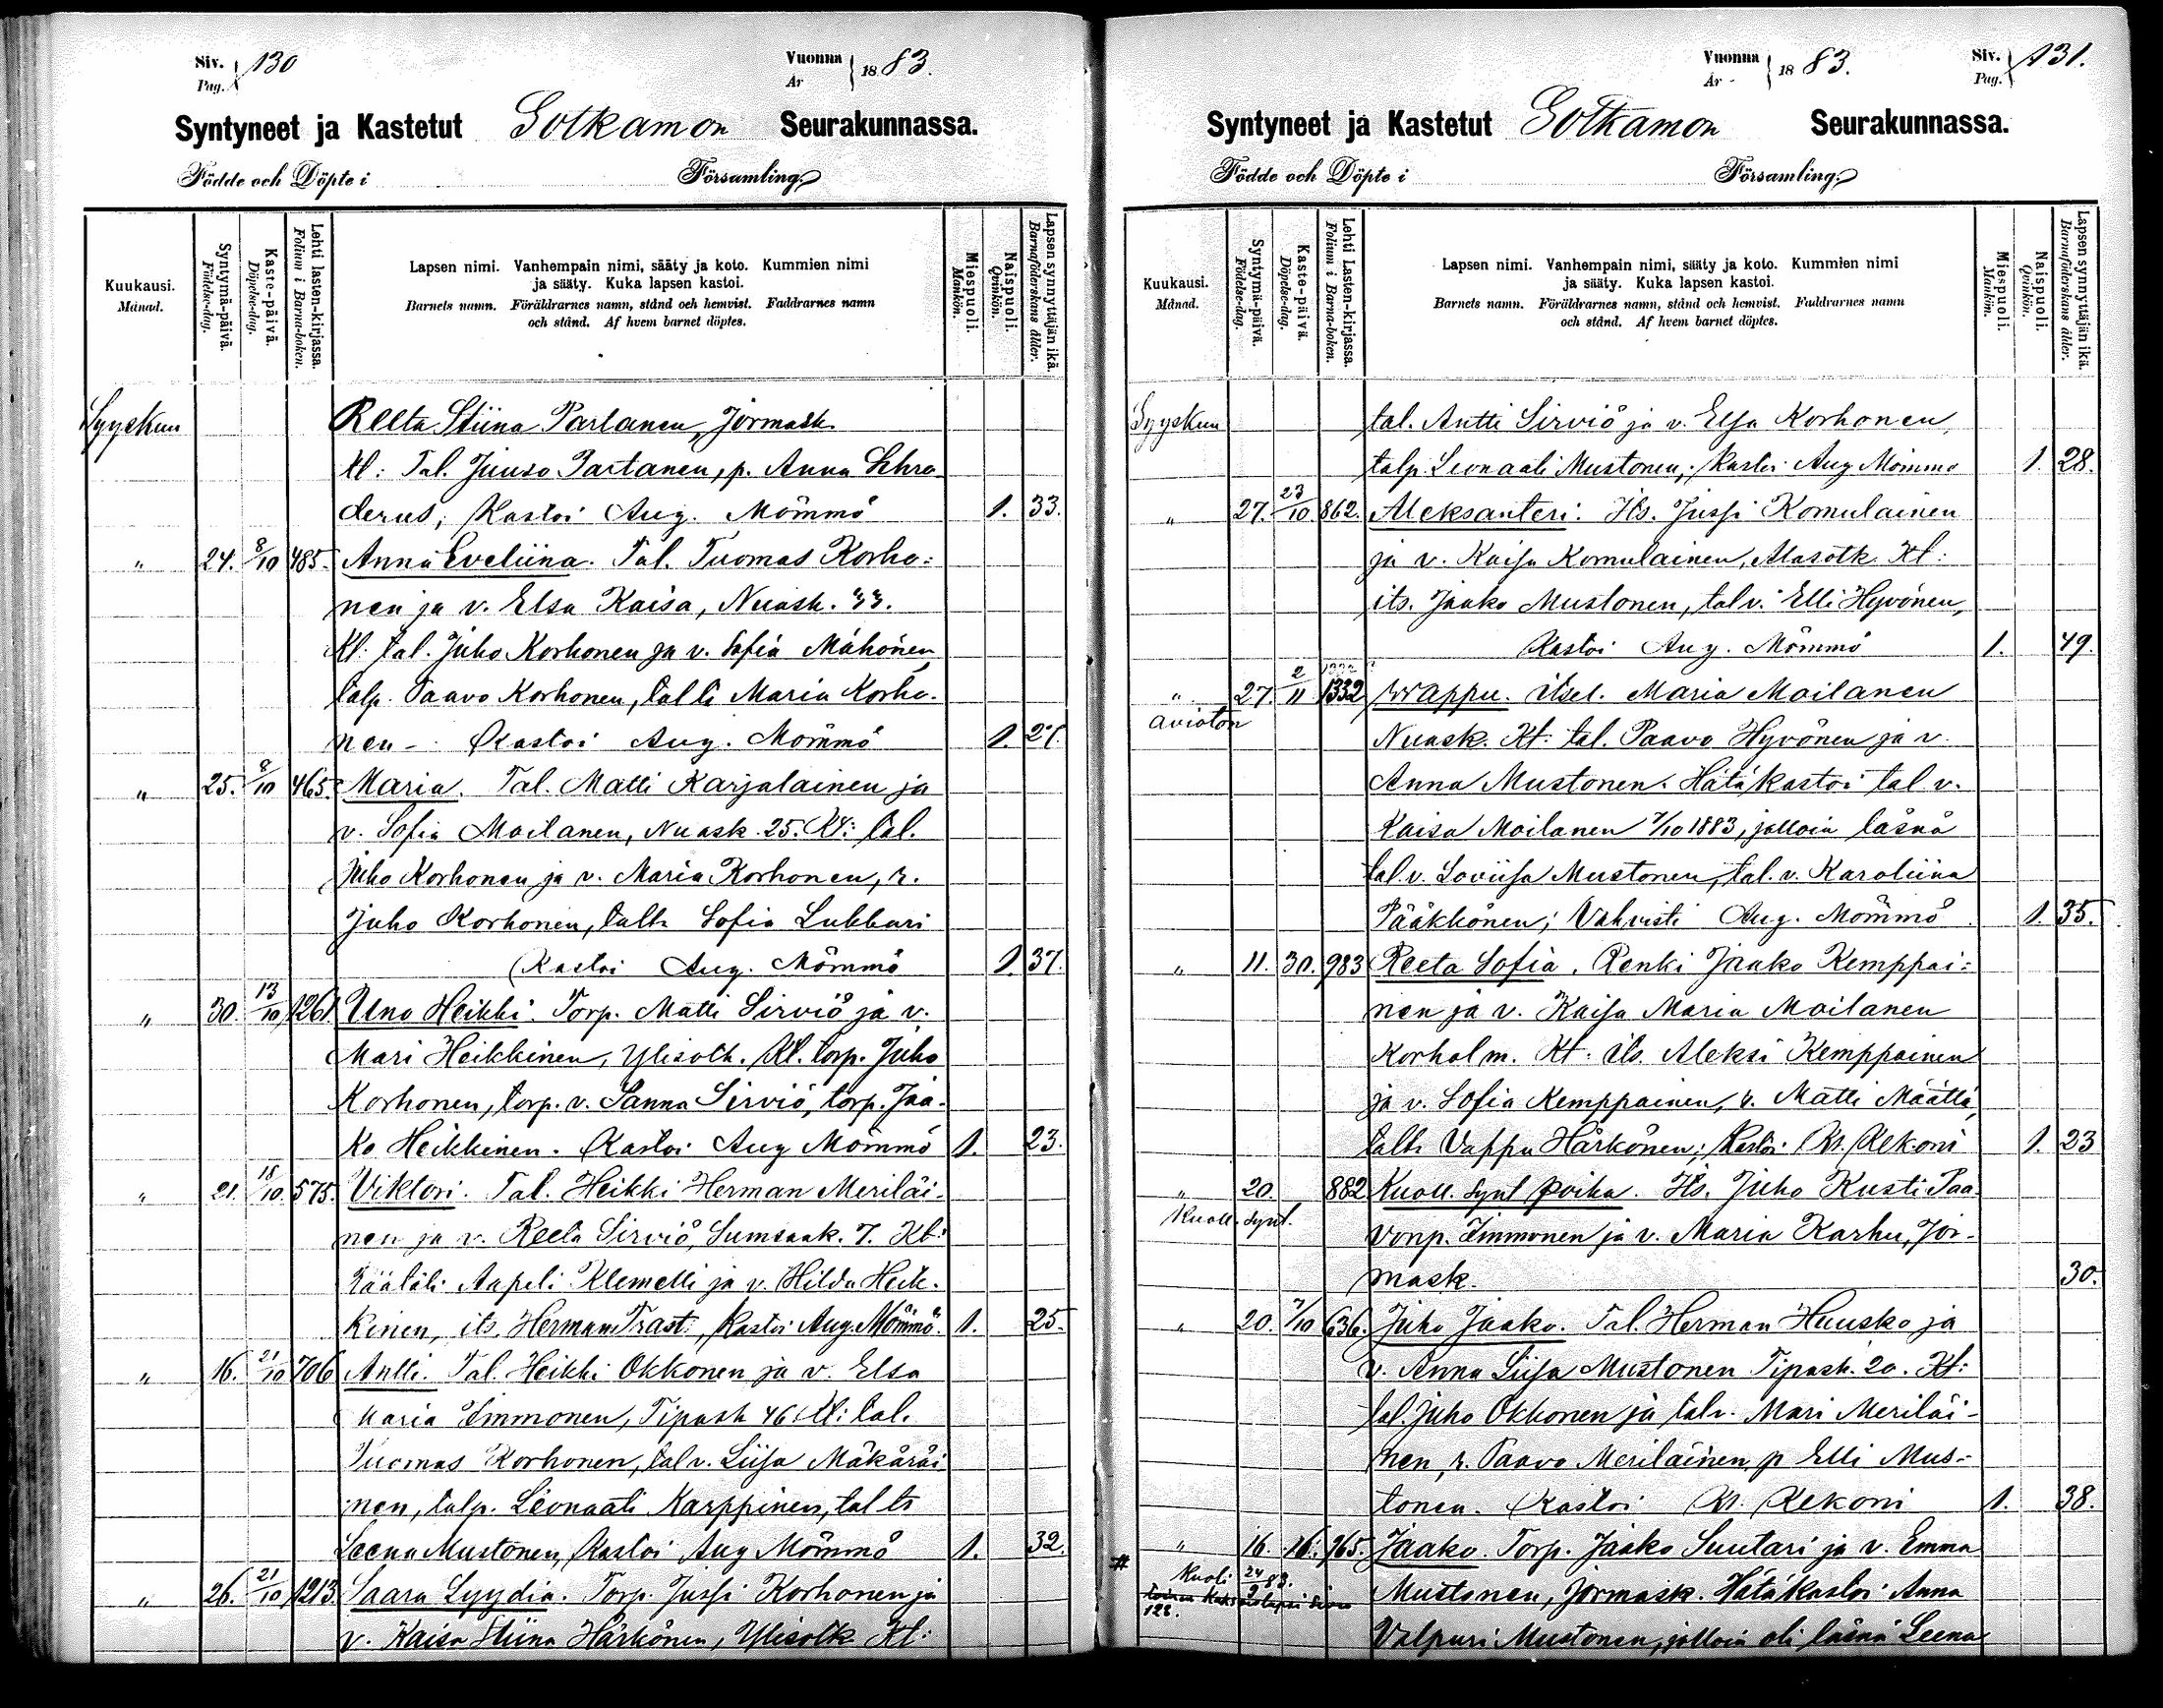 Siv. 130
Pag.
Vuonna 1883.
År
Syntyneet ja Kastetut Sotkamon Seurakunnassa.
Födde och Döpte i Församling.
Kuukausi.
Månad.
Syntymä-päivä.
Födelse-dag.
Kaste-päivä.
Döpelse-dag.
Lehti lasten-kirjassa.
Folium i Barna-boken.
Lapsen nimi. Vanhempain nimi, sääty ja koto. Kummien nimi
ja sääty. Kuka lapsen kastoi.
Barnets namn. Föräldrarnes namn, stånd och hemvist. Faddrarnes namn
och stånd. Af hvem barnet döptes.
Miespuoli.
Mankön.
Naispuoli.
Qvinkön.
Lapsen synnyttäjän ikä.
Barnaföderskans ålder.
Syyskuu Reeta Stiina Partanen, Jormask.
Kt: Tal. Juuso Partanen, p. Anna Schro
derus; Kastoi Aug. Mömmö 1. 33.
" 24. 8/10 485. Anna Eveliina. Tal. Tuomas Korho=
nen ja v. Elsa Kaisa, Nuask. 33.
Kt: tal. Juho Korhonen ja v. Sofia Mähönen
talp. Paavo Korhonen, talts Maria Korho-
nen - Kastoi Aug. Mömmö 1. 27.
" 25. 8/10 465. Maria. Tal. Matti Karjalainen ja
v. Sofia Moilanen, Nuask. 25. Kt: tal.
Juho Korhonen ja v. Maria Korhonen, r.
Juho Korhonen, talts Sofia Lukkari
Kastoi Aug. Mömmö 1. 37.
" 30. 13/10 1261. Uno Heikki. Torp. Matti Sirviö ja v.
Mari Heikkinen, Ylisotk. Kt. torp. Juho
Korhonen, torp. v. Sanna Sirviö, torp. Jaa-
ko Heikkinen. Kastoi Aug Mömmö 1. 23.
" 21. 18/10. 575. Viktori. Tal. Heikki Herman Meriläi-
nen ja v. Reeta Sirviö, Sumsaak. 7. Kt:
Räätäli Aapeli Klemetti ja v. Hilda Heik-
kinen, its. Herman Trast, Kastoi Aug. Mömmö. 1. 25.
" 16. 21/10 706 Antti. Tal. Heikki Okkonen ja v. Elsa
Maria Immonen, Tipask 46 Kt: tal.
Tuomas Korhonen, tal v. Liisa Mäkäräi
nen, talp. Leonaati Karppinen, talts
Leena Mustonen, Kastoi Aug Mömmö 1. 32.
" 26. 21/10 1213. Saara Lyydia. Torp. Jussi Korhonen ja
v. Kaisa Stiina Härkönen, Ylisotk Kt:
Vuonna 1883.
År
Siv. 131.
Pag.
Syntyneet ja Kastetut Sotkamon Seurakunnassa.
Födde och Döpte i Församling.
Kuukausi.
Månad.
Syntymä-päivä.
Födelse-dag.
Kaste-päivä.
Döpelse-dag.
Lehti Lasten-kirjassa.
Folium i Barna-boken.
Lapsen nimi. Vanhempain nimi, sääty ja koto. Kummien nimi
ja sääty. Kuka lapsen kastoi.
Barnets namn. Föräldrarnes namn, stånd och hemvist. Faddrarnes namn
och stånd. Af hvem barnet döptes.
Miespuoli.
Mankön.
Naispuoli.
Qvinkön.
Lapsen synnyttäjän ikä.
Barnaföderskans ålder.
Syyskuu tal. Antti Sirviö ja v. Elsa Korhonen,
talp. Leonaati Mustonen; Kastoi Aug Mömmö 1. 28.
" 27. 23/10 862. Aleksanteri. Its. Jussi Komulainen
ja v. Kaisa Komulainen, Alasotk. Kt:
its. Jaako Mustonen, tal v. Elli Hyvönen,
Kastoi Aug. Mömmö 1. 49.
" 27. 2/11 1332 Wappu. itsel. Maria Moilanen
avioton Nuask. Kt: tal. Paavo Hyvönen ja v.
Anna Mustonen. Hätäkastoi tal v.
Kaisa Moilanen 7/10 1883, jolloin läsnä
tal. v. Loviisa Mustonen, tal. v. Karoliina
Pääkkönen; Vahvisti Aug. Mömmö 1. 35.
" 11. 30. 983 Reeta Sofia. Renki Jaako Kemppai=
nen ja v. Kaisa Maria Moilanen
Korholm. Kt: its. Aleksi Kemppainen
ja v. Sofia Kemppainen, r. Matti Määttä,
talts Vappu Härkönen; Kastoi Kr. Rekoni 1. 23
" 20. 882 Kuoll. synt poika. Its. Juho Kusti Paa
Kuoll. synt. vonp. Immonen ja v. Maria Karhu, Jor-
mask. 30.
" 20. 7/10 636. Juho Jaako. Tal. Herman Huusko ja
v. Anna Liisa Mustonen Tipask. 20. Kt:
tal. Juho Okkonen ja talv. Mari Meriläi-
nen, r. Paavo Meriläinen, p Elli Mus-
tonen. Kastoi Kr. Rekoni 1. 38.
# " 16. 16. 965. Jaako. Torp. Jaako Suutari ja v. Emma
Kuoli 24/9 83. Mustonen, Jormask. Hätäkastoi Anna
128. Valpuri Mustonen, jolloin oli läsnä Leena